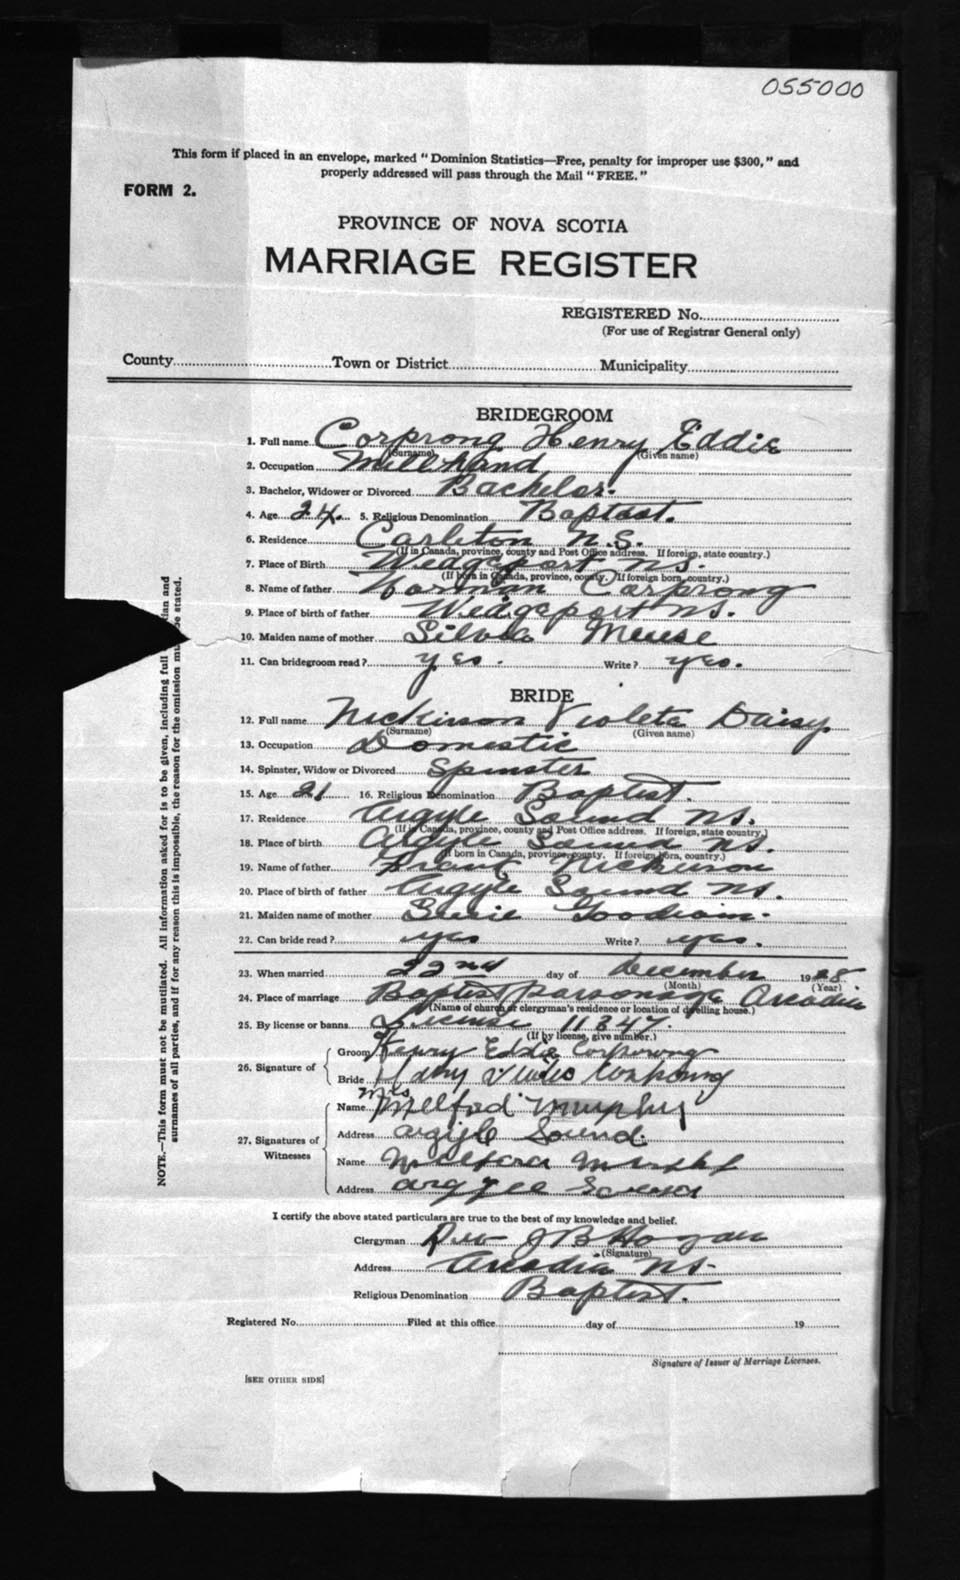 055000
This form if placed in an envelope, marked "Dominion Statistics—Free, penalty for improper use $300," and
properly addressed will pass through the Mail "FREE."
FORM 2.
PROVINCE OF NOVA SCOTIA
MARRIAGE REGISTER
REGISTERED No.
(For use of Registrar General only)
County Town or District Municipality
BRIDEGROOM
1. Full name Corprong Henry Eddie
(Surname) (Given name)
2. Occupation Millhand
3. Bachelor, Widower or Divorced Bachelor.
4. Age 24. 5. Religious Denomination Baptist.
6. Residence Carleton N.S.
(If in Canada, province, county and Post Office address. If foreign, state country.)
7. Place of Birth Wedgeport NS.
(If born in Canada, province, county. If foreign born, country.)
8. Name of father Norman Corprong
9. Place of birth of father Wedgeport NS.
10. Maiden name of mother Meuse
11. Can bridegroom read? yes. Write? yes.
BRIDE
12. Full name Nickerson Violeta Daisy
(Surname) (Given name)
13. Occupation Domestic
14. Spinster, Widow or Divorced Spinster
15. Age 21 16. Religious Denomination Baptist.
17. Residence Argyle Sound NS.
(If in Canada, province, county and Post Office address. If foreign, state country.)
18. Place of birth Argyle Sound NS.
(If born in Canada, province, county. If foreign born, country.)
19. Name of father Frank Nickerson
20. Place of birth of father Argyle Sound NS.
21. Maiden name of mother Susie
22. Can bride read? yes Write? yes.
23. When married 22nd day of December 1928
(Month) (Year)
24. Place of marriage Baptist parsonage Arcadia
(Name of church or clergyman's residence or location of dwelling house.)
25. By license or banns License 11847.
(If by license, give number.)
26. Signature of
Groom Henry Eddie Corporong
Bride
27. Signatures of Witnesses
Name Mrs Melford Murphy
Address argyle Sound
Name Murphy
Address argyle Sound
I certify the above stated particulars are true to the best of my knowledge and belief.
Clergyman Rev J B Hogan
(Signature)
Address Arcadia NS.
Religious Denomination Baptist.
Registered No. Filed at this office day of 19
Signature of Issuer of Marriage Licenses.
[SEE OTHER SIDE]
NOTE.—This form must not be mutilated. All information asked for is to be given, including full
surnames of all parties, and if for any reason this is impossible, the reason for the omission must be stated.